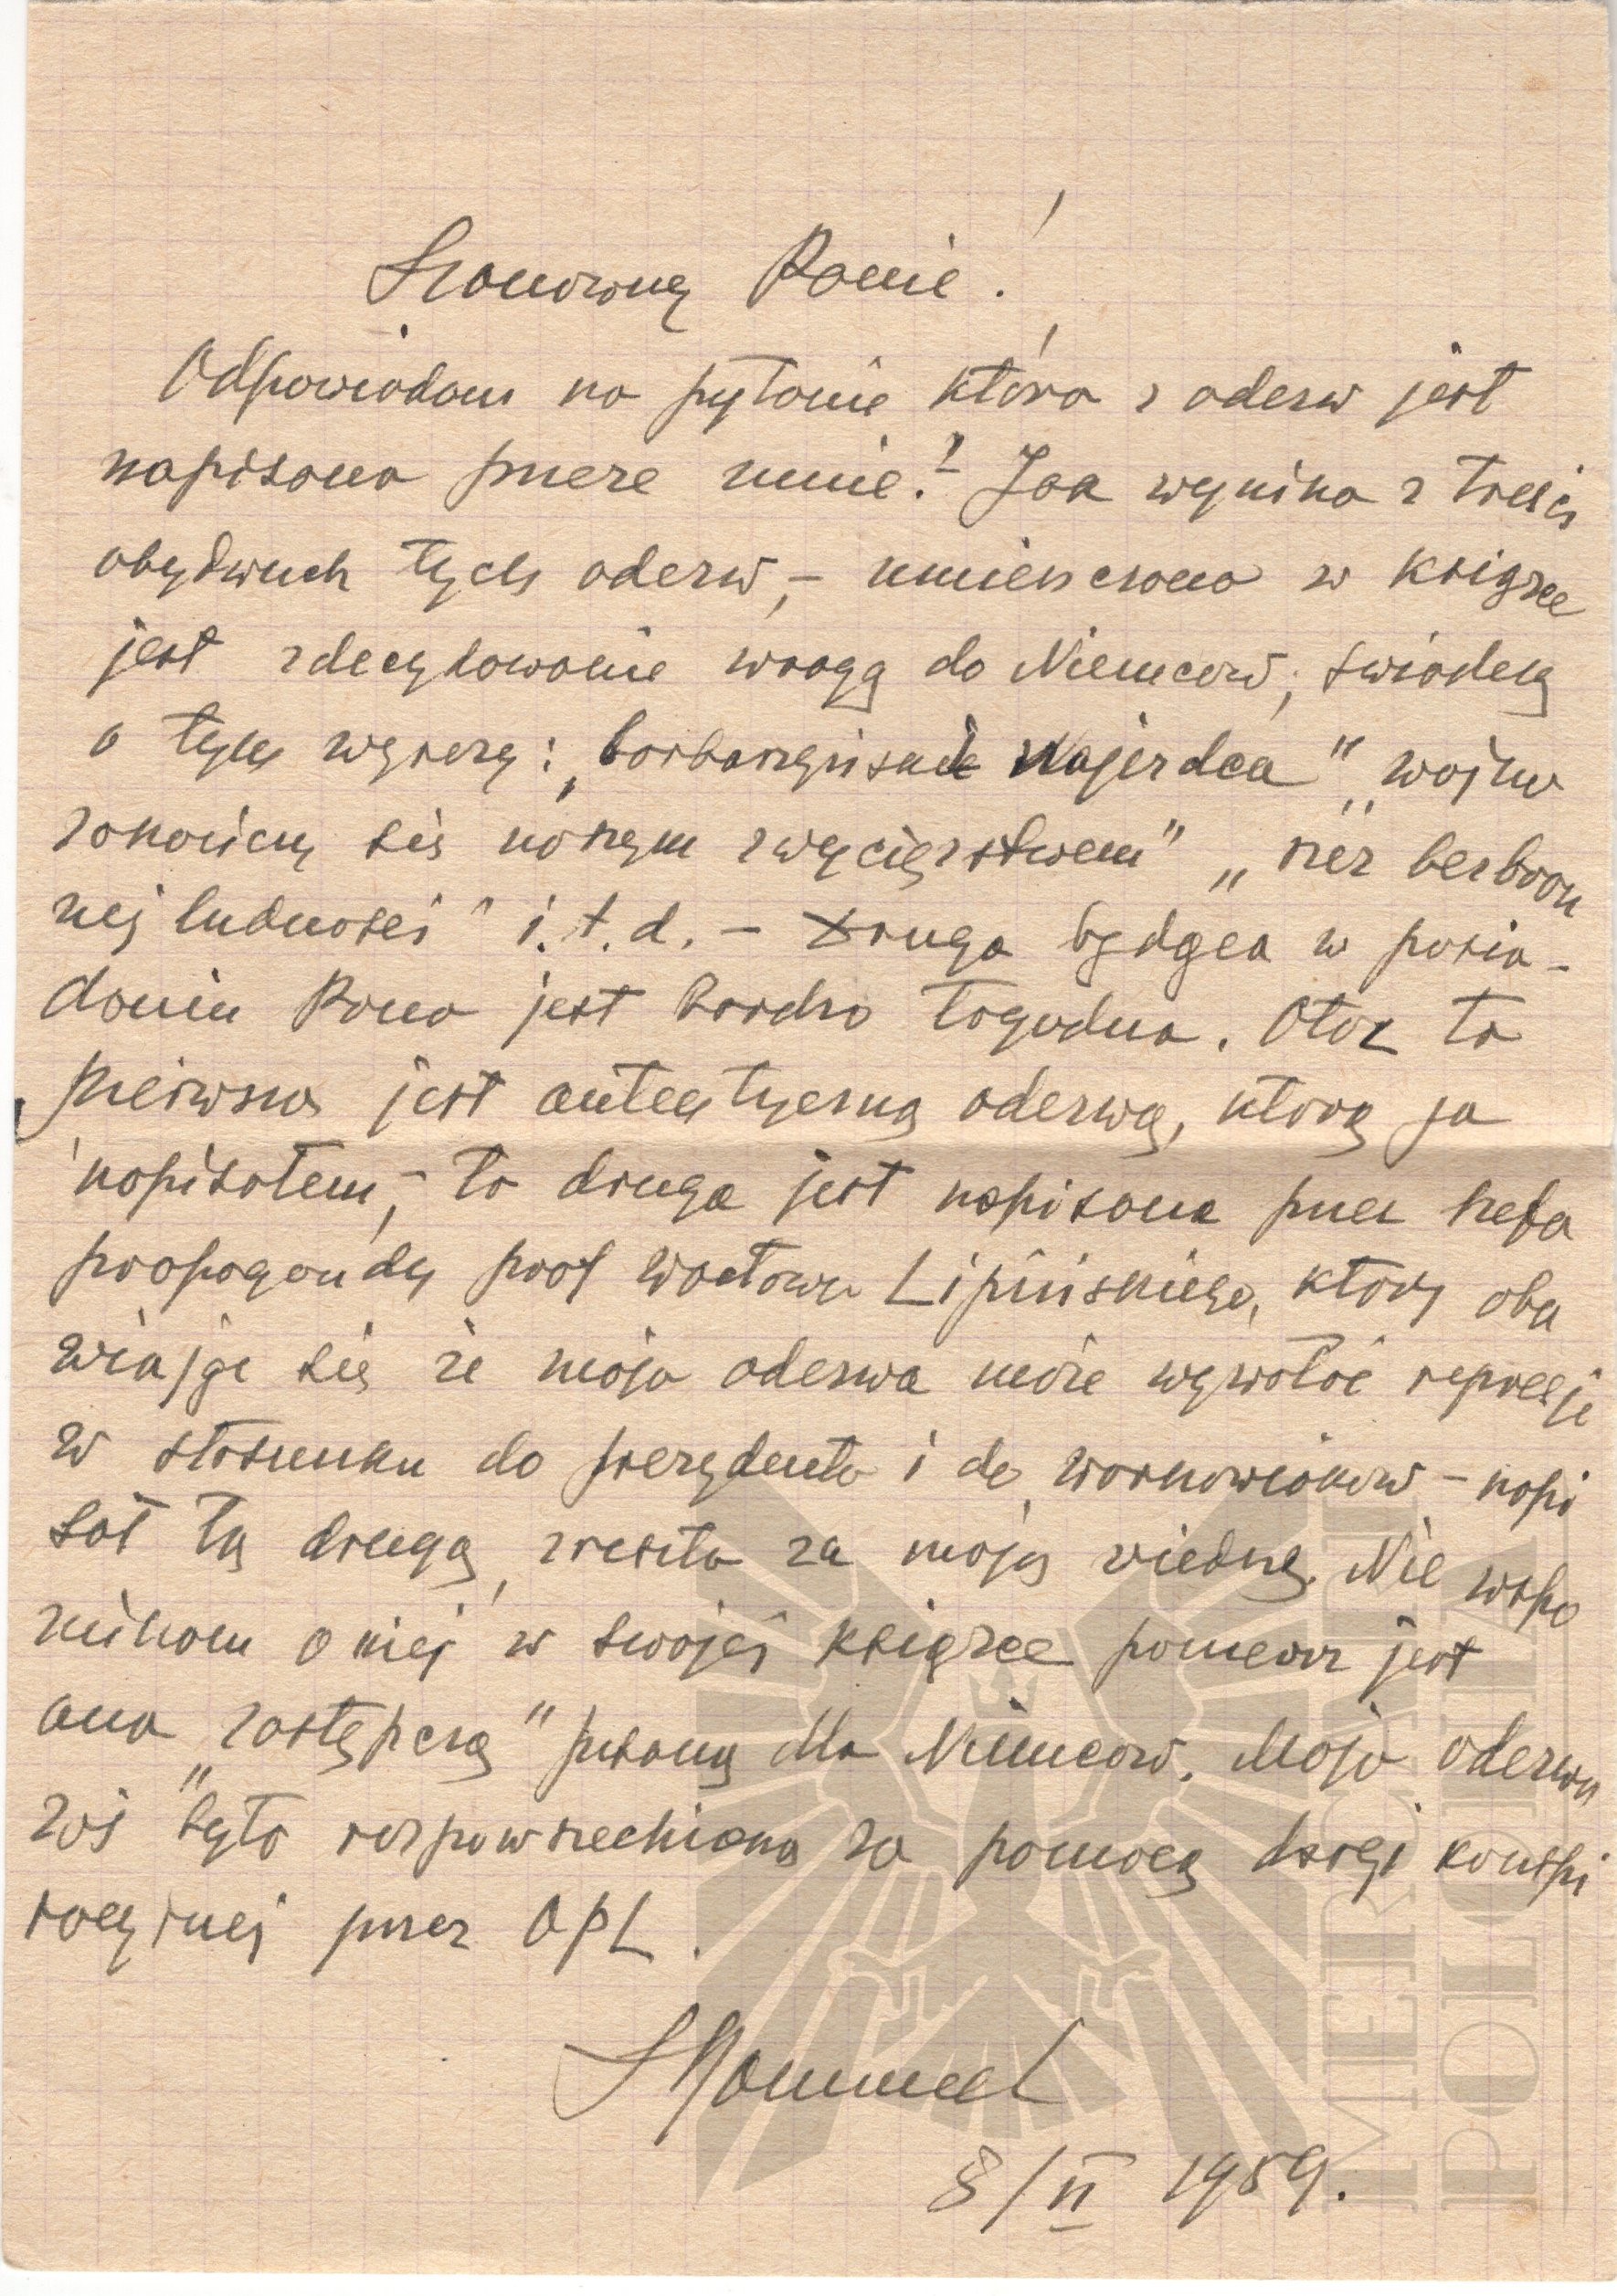 Szanowny Panie!
Odpowiadam na pytanie która z odezw jest
napisana przeze mnie? Jak wynika z treści
obydwuch tych odezw, – umieszczona w książce
jest zdecydowanie wrogą do Niemców, świadczą
o tym wyrazy: „barbarzyński najeźdca" „wojna
zakończy się naszym zwycięzstwem" „rzeź bezbron
nej ludności" i.t.d. – Druga będąca w posia-
daniu Pana jest bardzo łagodna. Otóż ta
pierwsza jest autentyczną odezwą, którą ja
napisałem, – ta druga jest napisana przez szefa
propagandy prof Wacława Lipińskiego, który oba
wiając się że moja odezwa może wywołać represje
w stosunku do prezydenta i do warszawiaków – napi
sał tą drugą, zresztą za moją wiedzą. Nie wspo
minam o niej w swojej książce ponieważ jest
ona „zastępczą" pisaną dla Niemców. Moja odezwa
zaś była rozpowszechiona za pomocą drogi konspi
racyjnej przez OPL.
J Rómmel
8/II 1959.
IMERCATI
POLONIA